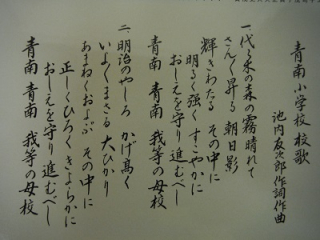 青南小学校校歌
池内友次郎作詞作曲
一、代々木の森の霧晴れて
さんと昇る朝日影
輝きわたるその中に
明るく強くすこやかに
おしえを守り進むべし
青南青南我等の母校
二、明治のやしろかげ高く
いよよまさる大ひかり
あまねくおよぶその中に
正しくひろくきよらかに
おしえを守り進むべし
青南青南我等の母校